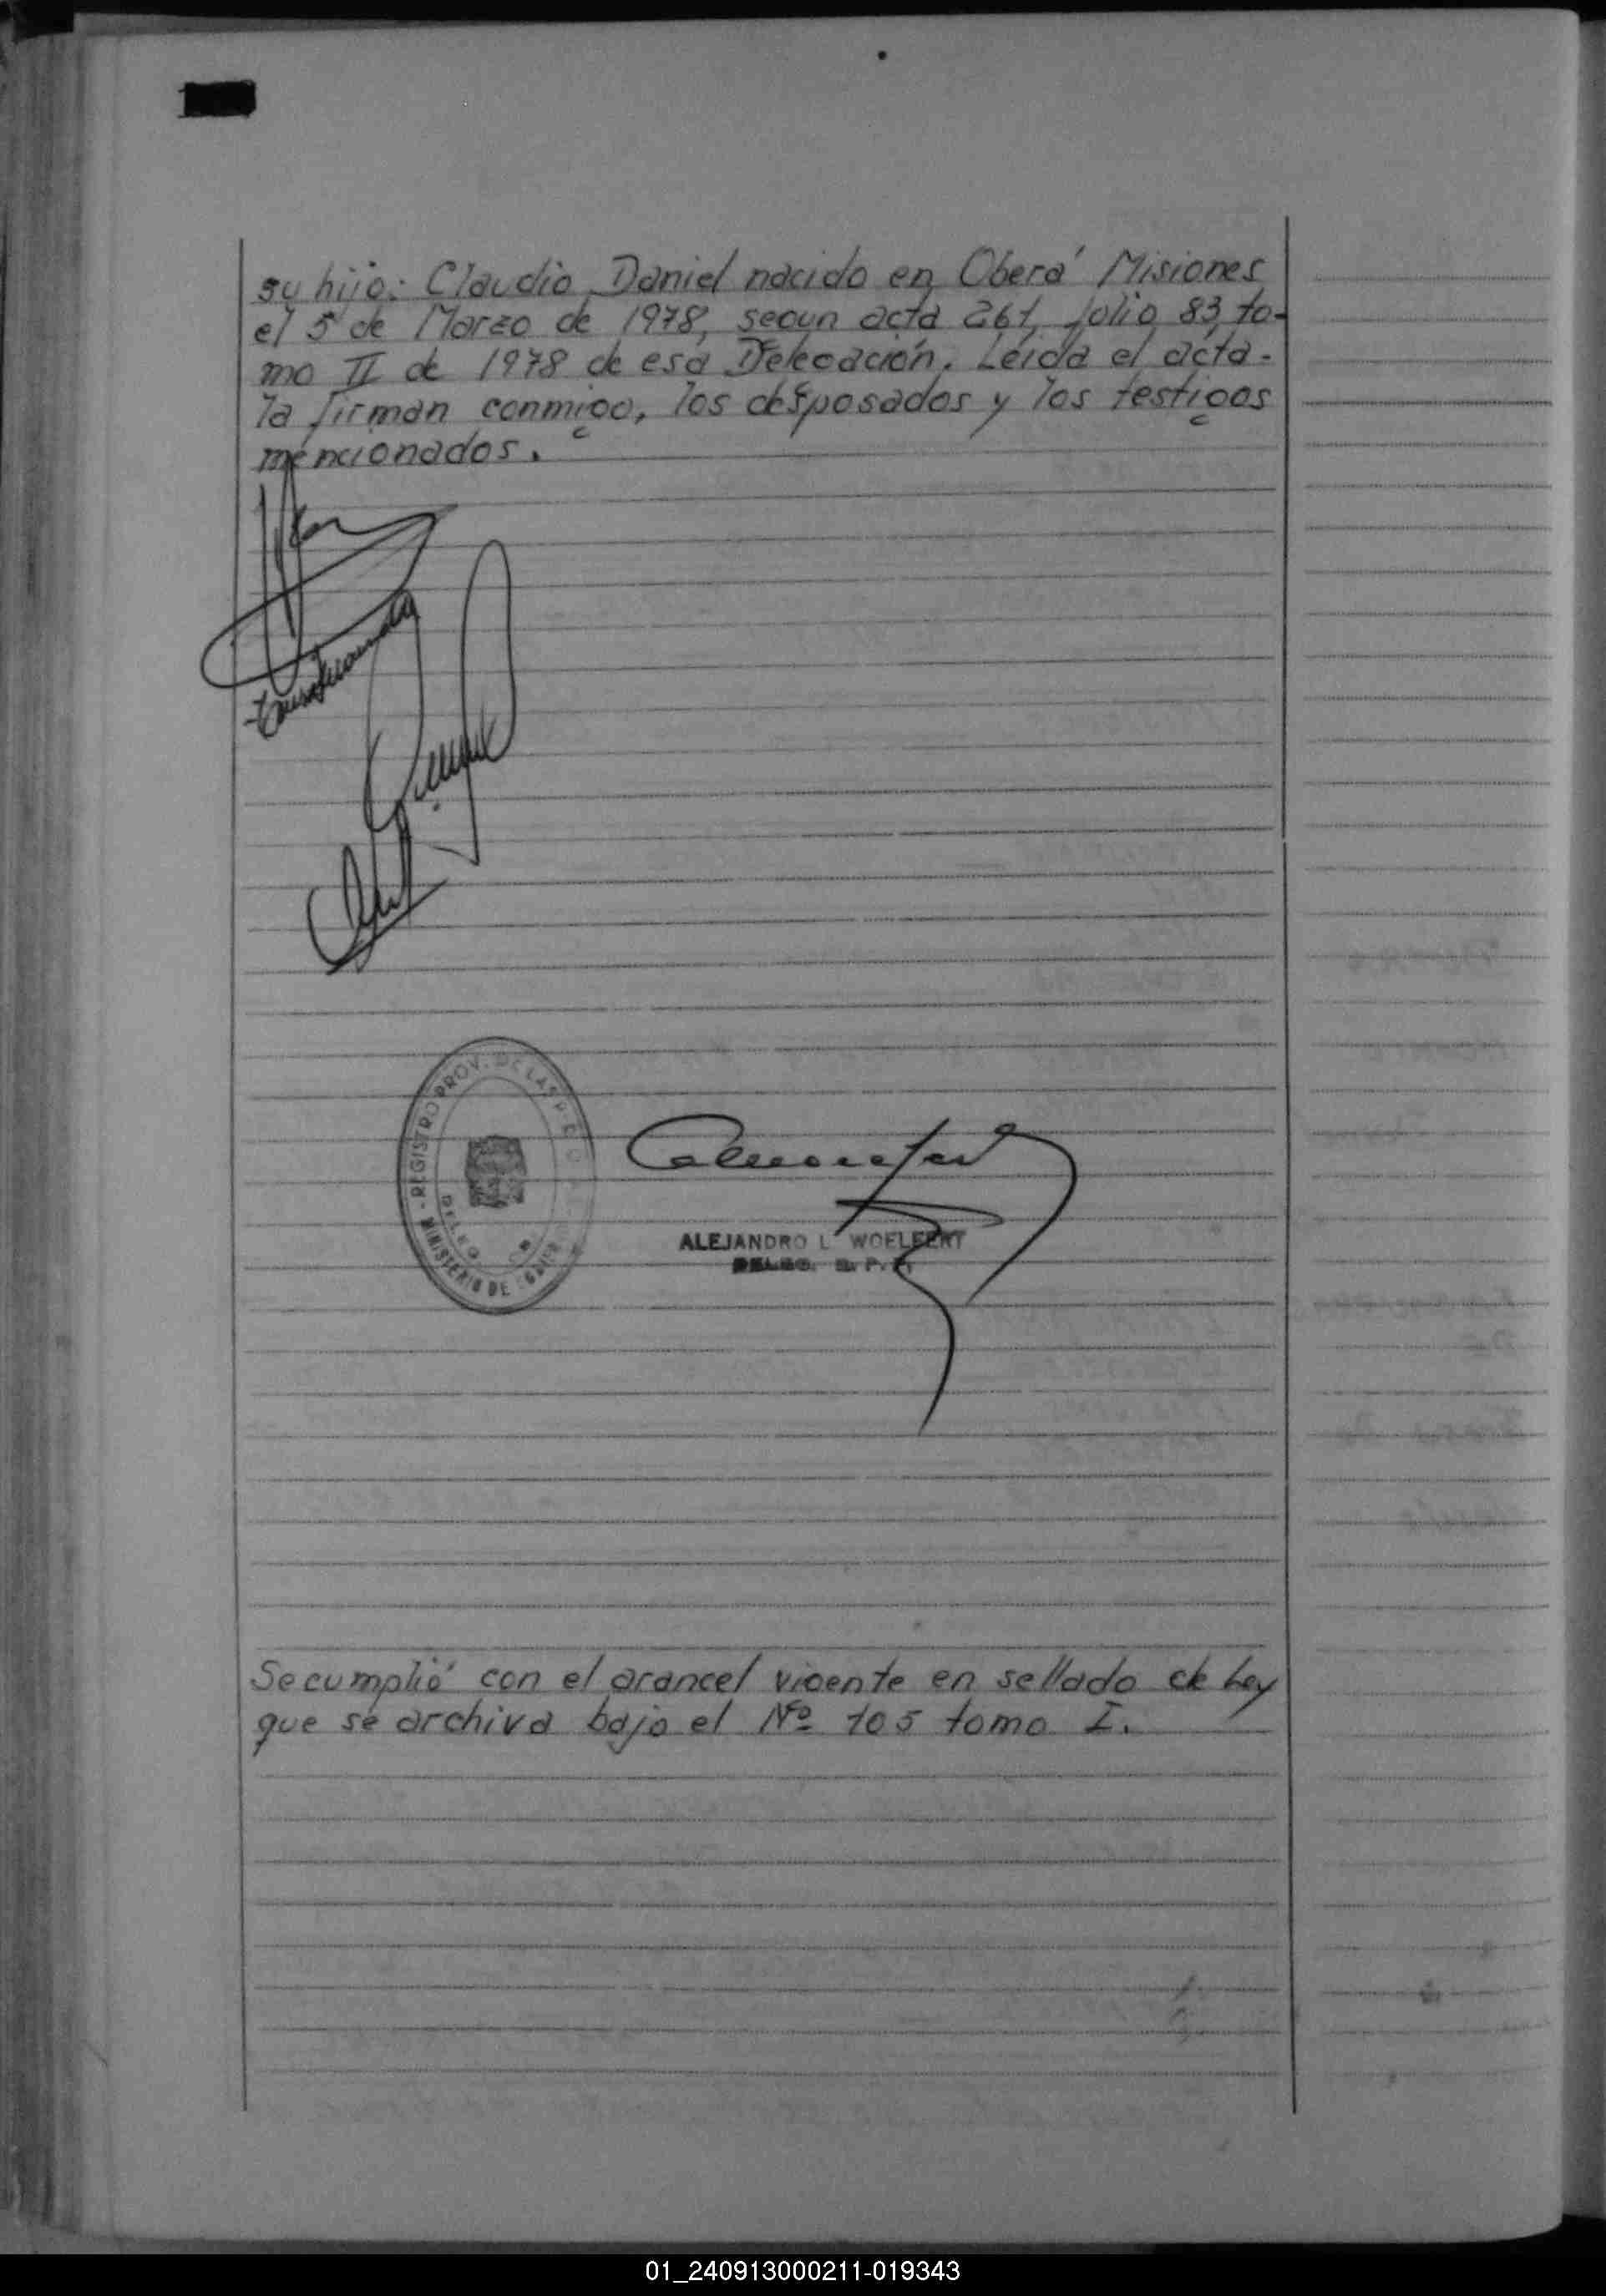 su hijo: Claudio Daniel nacido en Oberá Misiones
el 5 de Marzo de 1978, segun acta 261, folio 83, to-
mo II de 1978 de esa Delegación. Leída el acta-
la firman conmigo, los desposados y los testigos
mencionados.
REGISTRO PROV. DE LAS PE
MINISTERIO DE
ALEJANDRO L WOELFERT
DELEG. R. P. P.
Se cumplió con el arancel vigente en sellado de Ley
que se archiva bajo el Nº 105 tomo I.
01_240913000211-019343